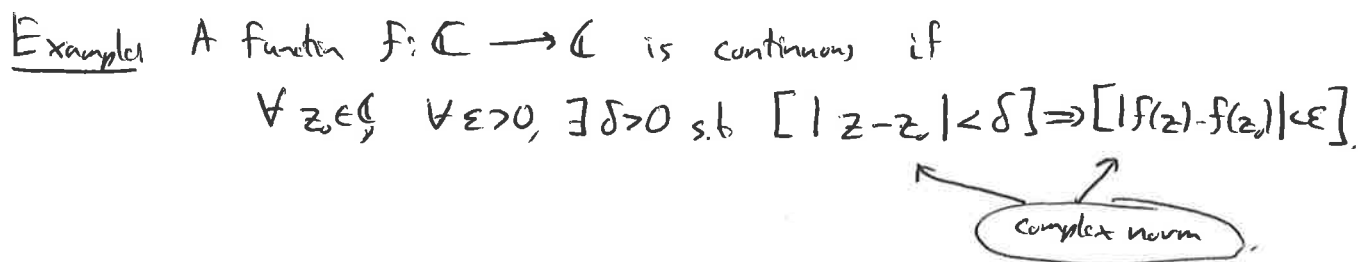 Examples A function f: ℂ → ℂ is continuous if
∀ z₀∈ℂ, ∀ ε>0, ∃ δ>0 s.t. [|z-z₀|<δ]⇒[|f(z)-f(z₀)|<ε].
complex norm.